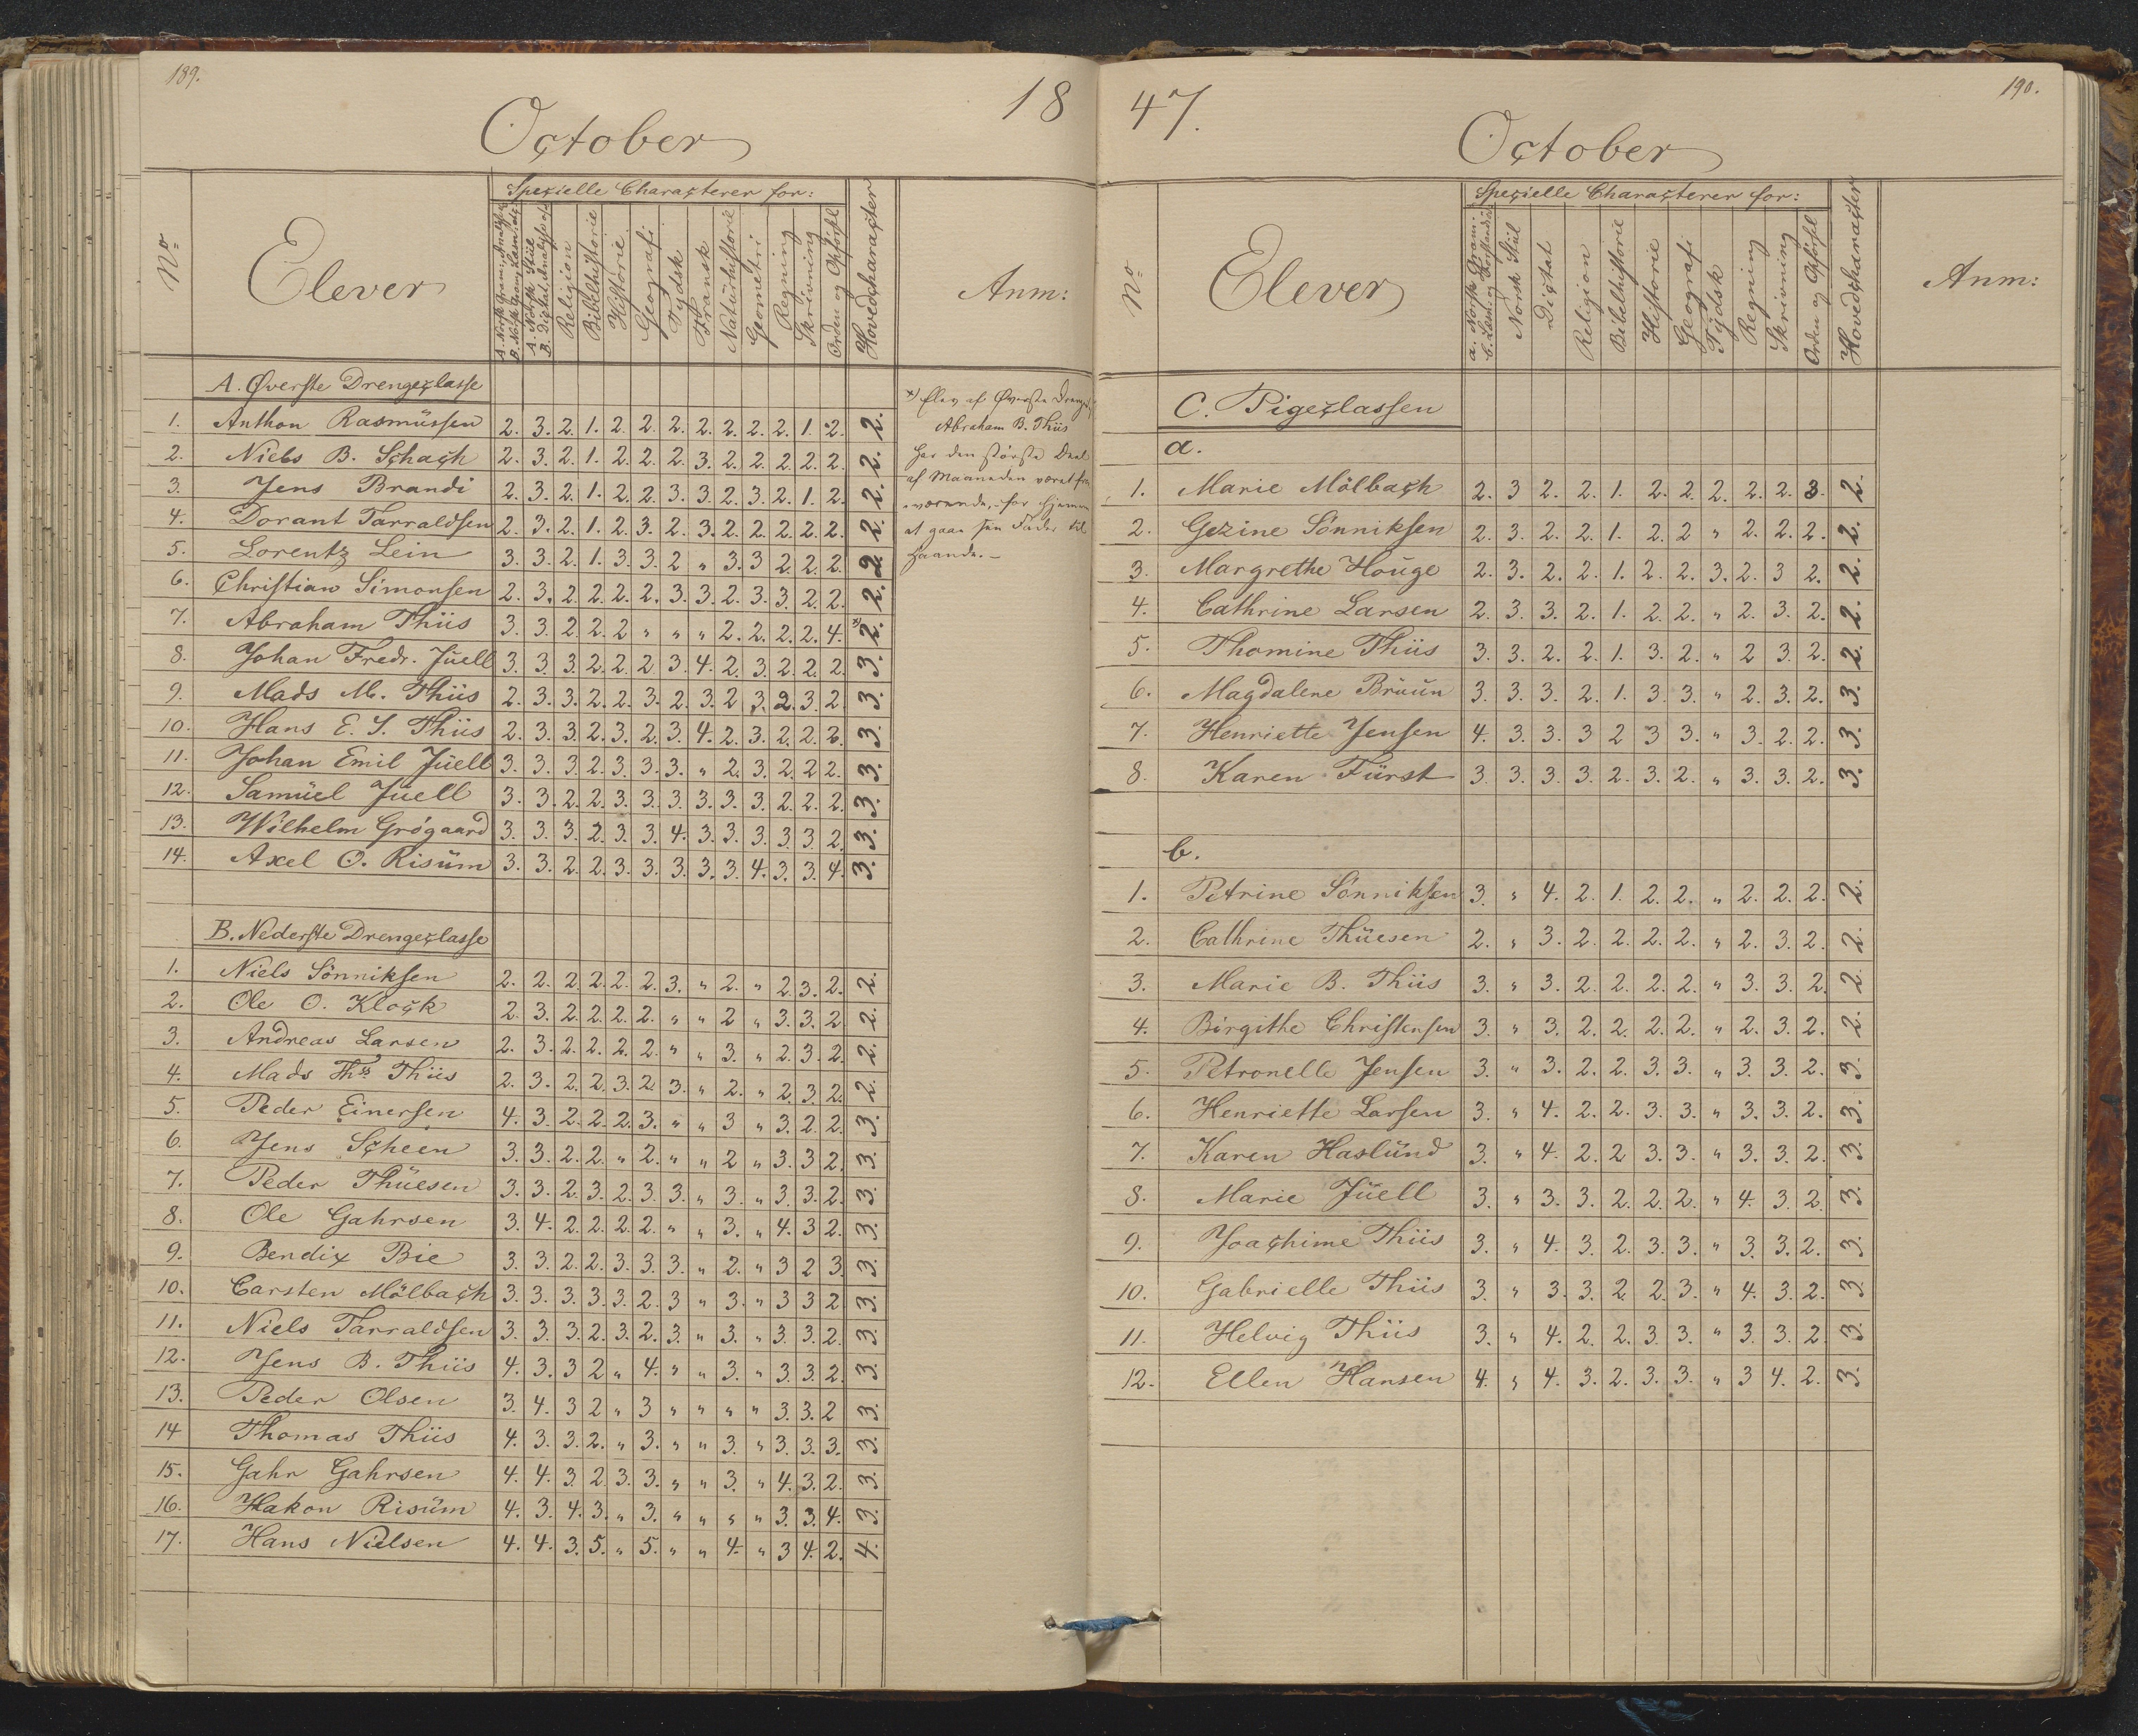 189.
18
October
No
Elever
Specielle Characterer for:
A. Norsk Gram: Analyse
B. Norsk Gram, Læsn. etc
A. Norsk Stiil
B. Dictat, Analyse etc
Religion
Bibelhistorie
Historie
Geografi
Tydsk
Fransk
Naturhistorie
Geometri
Regning
Skrivning
Orden og Opførsel
Hovedcharacter
Anm:
A. Øverste Drengeclasse
1. Anthon Rasmüssen 2. 3. 2. 1. 2. 2. 2. 2. 2. 2. 2. 1. 2. 2.
2. Niels B. Schach 2. 3. 2. 1. 2. 2. 2. 3. 2. 2. 2. 2. 2. 2.
3. Jens Brandi 2. 3. 2. 1. 2. 2. 3. 3. 2. 3. 2. 1. 2. 2.
4. Dorant Tarraldsen 2. 3. 2. 1. 2. 3. 2. 3. 2. 2. 2. 2. 2. 2.
5. Lorentz Lein 3. 3. 2. 1. 3. 3. 2 " 3. 3 2. 2. 2. 2.
6. Christian Simonsen 2. 3. 2. 2. 2. 2. 3. 3. 2. 3. 3. 2. 2. 2.
7. Abraham Thiis 3. 3. 2. 2. 2 " " " 2. 2. 2. 2. 4. *2.
8. Johan Fredr. Jüell 3. 3. 3. 2. 2. 2 3. 4. 2. 3. 2. 2. 2. 3.
9. Mads M. Thiis 2. 3. 3. 2. 2. 3. 2. 3. 2 3. 2. 3. 2. 3.
10. Hans E. S. Thiis 2. 3. 3. 2. 3. 2. 3. 4. 2. 3. 2. 2. 2. 3.
11. Johan Emil Jüell 3. 3. 3. 2. 3. 3. 3. " 2. 3. 2. 2 2. 3.
12. Samüel Jüell 3. 3. 2. 2. 3. 3. 3. 3. 3. 3. 2. 2. 2. 3.
13. Wilhelm Grógaard 3. 3. 3. 2. 3. 3. 4. 3. 3. 3. 3. 3. 2. 3.
14. Axel O. Risüm 3. 3. 2. 2. 3. 3. 3. 3. 3. 4. 3. 3. 4. 3.
*) Elev af Øverste
Abraham B. Thiis
har den største Deel
af Maaneden været fra
værende, for hjemme
at gaae sin Fader til
Haande. –
B. Nederste Drengeclasse
1. Niels Sönniksen 2. 2. 2. 2. 2. 2. 3. " 2. " 2. 3. 2. 2.
2. Ole O. Klock 2. 3. 2. 2. 2. 2. " " 2 " 3. 3. 2 2.
3. Andreas Larsen 2. 3. 2. 2. 2. 2. " " 3. " 2. 3. 2. 2.
4. Mads Ths Thiis 2. 3. 2. 2. 3. 2. 3. " 2. " 2. 3. 2. 2.
5. Peder Einersen 4. 3. 2. 2. 2. 3. " " 3 " 3. 2. 2. 3.
6. Jens Scheen 3. 3. 2. 2. " 2. " " 2 " 3. 3 2. 3.
7. Peder Thüesen 3. 3. 2. 3. 2. 3. 3. " 3. " 3. 3. 2. 3.
8. Ole Gahrsen 3. 4. 2. 2. 2. 2. " " 3. " 4. 3 2. 3.
9. Bendix Bie 3. 3. 2. 2. 3. 3. 3. " 2. " 3 2 3. 3.
10. Carsten Mölbach 3. 3. 3. 3. 3. 2. 3 " 3. " 3 3 2. 3.
11. Niels Tarraldsen 3. 3. 3. 2. 3. 2. 3. " 3. " 3. 3. 2. 3.
12. Jens B. Thiis 4. 3. 3 2 " 4. " " 3. " 3. 3. 2. 3.
13. Peder Olsen 3. 4. 3 2 " 3 " " " " 3. 3. 2 3.
14 Thomas Thiis 4. 3. 3. 2. " 3. " " 3. " 3. 3. 3. 3.
15. Gahr Gahrsen 4. 4. 3 2. 3. 3. " " 3. " 4. 3. 2. 3.
16. Hakon Risüm 4. 3. 4. 3. " 3. " " " " 3. 3. 4. 3.
17. Hans Nielsen 4. 4. 3. 5. " 5. " " 4. " 3 4. 2. 4.
47.
190.
October
No
Elever
Specielle Characterer for:
a. Norsk Gram:
b. Læsn: og Forstandsø
Norsk Stiil
Dictat
Religion
Bibelhistorie
Historie
Geografi
Tydsk
Regning
Skrivning
Orden og Opförsel
Hovedcharacter
Anm:
C. Pigeclassen
a.
1. Marie Mölbach 2. 3 2. 2. 1. 2. 2. 2. 2. 2. 3. 2.
2. Gezine Sönniksen 2. 3. 2. 2. 1. 2. 2 " 2. 2. 2. 2.
3. Margrethe Houge 2. 3. 2. 2. 1. 2. 2. 3. 2. 3 2. 2.
4. Cathrine Larsen 2. 3. 3. 2. 1. 2. 2. " 2. 3. 2. 2.
5. Thomine Thiis 3. 3. 2. 2. 1. 3. 2. " 2 3. 2. 2.
6. Magdalene Brüün 3. 3. 3. 2. 1. 3. 3. " 2. 3. 2. 3.
7. Henriette Jensen 4. 3. 3. 3 2 3 3. " 3. 2. 2. 3.
8. Karen Fürst 3. 3. 3. 3. 2. 3. 2. " 3. 3. 2. 3.
b.
1. Petrine Sönniksen 3. " 4. 2. 1. 2. 2. " 2. 2. 2. 2.
2. Cathrine Thüesen 2. " 3. 2. 2. 2. 2. " 2. 3. 2. 2.
3. Marie B. Thiis 3. " 3. 2. 2. 2. 2. " 3. 3. 2. 2.
4. Birgithe Christensen 3. " 3. 2. 2. 2. 2. " 2. 3. 2. 2.
5. Petronelle Jensen 3. " 3. 2. 2. 3. 3. " 3. 3. 2. 3.
6. Henriette Larsen 3. " 4. 2. 2. 3. 3. " 3. 3. 2. 3.
7. Karen Haslünd 3. " 4. 2. 2 3. 3. " 3. 3. 2. 3.
8. Marie Jüell 3. " 3. 3. 2. 2. 2. " 4. 3. 2. 3.
9. Joachime Thiis 3. " 4. 3. 2. 3. 3. " 3. 3. 2. 3.
10. Gabrielle Thiis 3. " 3. 3. 2 2. 3. " 4. 3. 2. 3.
11. Helvig Thiis 3. " 4. 2. 2. 3. 3. " 3. 3. 2. 3.
12. Ellen Hansen 4. " 4. 3. 2. 3. 3. " 3 4. 2. 3.